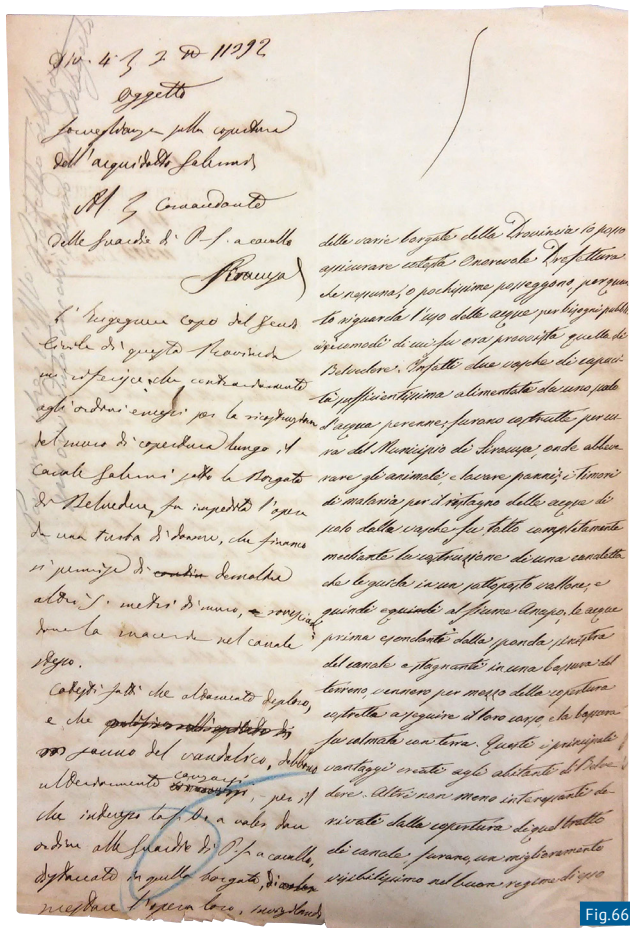 Div. 4 N 11392
Oggetto
Sorveglianza sulla copertura
dell'acquidotto Galermi
Al Comandante
delle Guardie di P. S. a cavallo
Siracusa
L'Ingegnere capo del Genio
Civile di questa Provincia
mi riferisce che contrariamente
agli ordini emessi per la ricostruzione
del muro di copertura lungo il
canale Galermi sotto la Borgata
di Belvedere, fu impedita l'opera
da una turba di donne, che financo
si permise di demolire
altri 5 metri di muro, e rovesciandone
la macerie nel canale
stesso.
Codesti fatti che altamente deploro,
e che
sanno del vandalico, debbono
per il
che interesso la S. V. a voler dare
ordine alle Guardie di P. S. a cavallo,
distaccate in quella borgata, di
prestare l'opera loro, sorvegliando
delle varie borgate della Provincia io posso
assicurare cotesta Onorevole Prefettura
che nessuna, o pochissime posseggono, per quan
to riguarda l'uso delle acque per bisogni pubblici
i comodi di cui fu ora provvista quella di
Belvedere. Infatti due vasche di capaci
tà sufficientissima alimentate da uno zaile
d'acqua perenne, furono costrutte per cu
ra del Municipio di Siracusa, onde abbeve
rare gli animali e lavare panni; i timori
di malaria per il ristagno delle acque di
scolo dalle vasche fu tolto completamente
mediante la costruzione di una canaletta
che le guida in un sottoposto vallone, e
quindi al fiume Anapo, le acque
prima esondanti dalla sponda sinistra
del canale e stagnanti in una bassura del
terreno vennero per mezzo della copertura
costrette a seguire il loro corso, e la bassura
fu colmata con terra. Questi i principali
vantaggi creati agli abitanti di Belve
dere. Altri non meno interessanti de
rivati dalla copertura di quel tratto
di canale, furono, un miglioramento
visibilissimo nel buon regime di esso
Fig.66